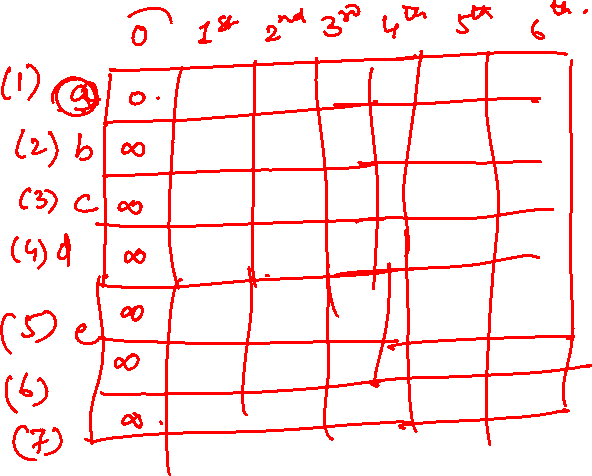 0 1st 2nd 3rd 4th 5th 6th.
(1) a 0.
(2) b ∞
(3) c ∞
(4) d ∞
(5) e ∞
(6) ∞
(7) ∞.